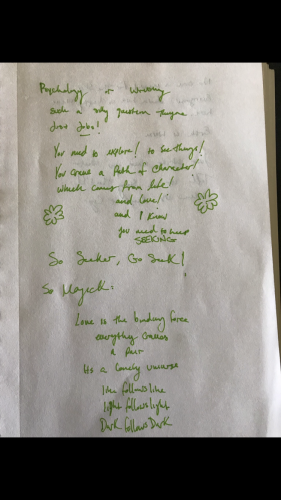 Psychology or Writing
such a silly question theyre
Just Jobs!
You need to explore! to See things!
You crave a Path of Character!
which comes from life!
and Love!
and I know
you need to keep
SEEKING
So Seeker, Go Seek!
So Magick:
Love is the binding force
everything comes
a part
Its a lonely universe
like follows like
light follows light
Dark follows Dark